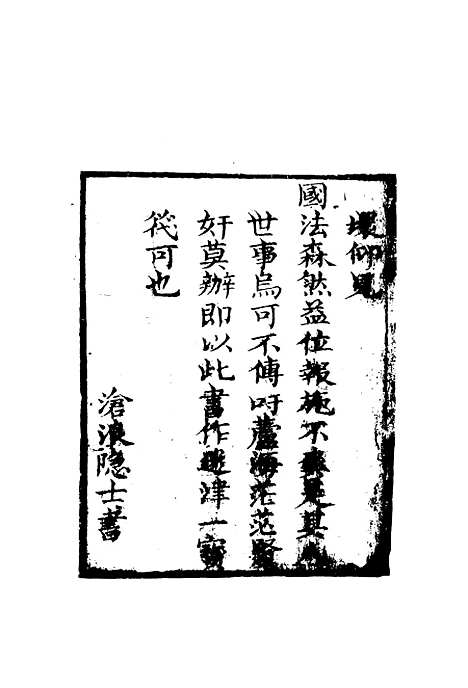 壞仰見
國法森然益位報施不爽是其
世事烏可不傳吁蘆海茫茫賢
奸莫辦即以此書作迷津一寶
筏可也
滄浪隐士書